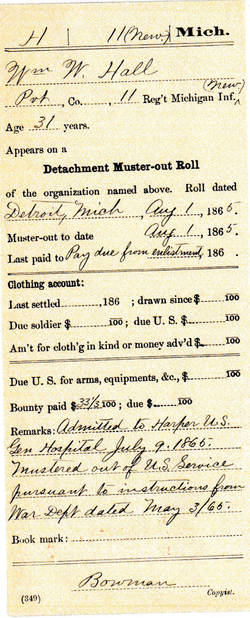 H | 11 (New) Mich.
Wm W. Hall
Pvt, Co. , 11 Reg't Michigan Inf. (New)
Age 31 years.
Appears on a
Detachment Muster-out Roll
of the organization named above. Roll dated
Detroit, Mich Aug 1, 1865.
Muster-out to date Aug 1, 1865.
Last paid to Pay due from enlistment, 186 .
Clothing account:
Last settled , 186 ; drawn since $ 100
Due soldier $ 100; due U. S. $ 100
Am't for cloth'g in kind or money adv'd $ 100
Due U. S. for arms, equipments, &c., $ 100
Bounty paid $ 33 1/3 100; due $ 100
Remarks: Admitted to Harper U.S.
Gen Hospital July 9. 1865.
Mustered out of U.S. Service
pursuant to instructions from
War Dept dated May 3/65.
Book mark:
Bowman
(349) Copyist.